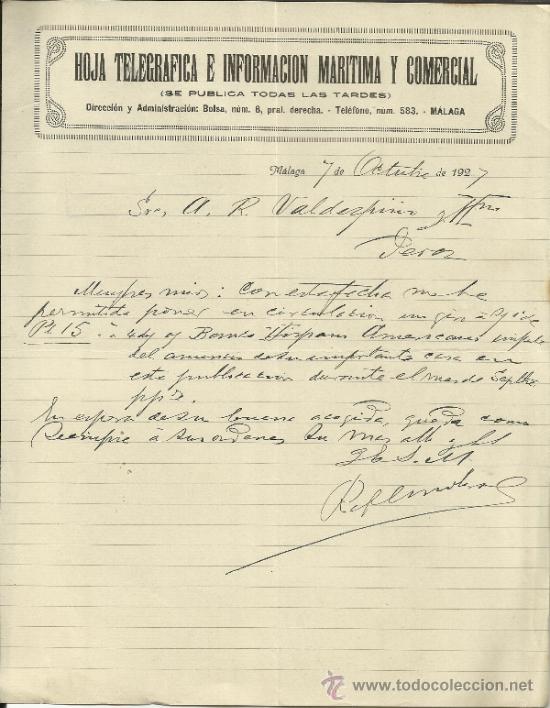 HOJA TELEGRAFICA E INFORMACION MARITIMA Y COMERCIAL
(SE PUBLICA TODAS LAS TARDES)
Dirección y Administración: Bolsa, núm. 6, pral. derecha. - Teléfono, num. 583. - MÁLAGA
Málaga 7 de Octubre de 1927
Sres. A. R. Valdespino y Hno
Jerez
Muy sres mios: Con esta fecha me he
permitido poner en circulacion un giro a
Pts 15.- a Banco Hispano Americano
del anuncio de su importante casa en
esta publicacion durante el mes de Septbre
pp.
En espera de su buena acogida, queda como
siempre á sus ordenes su mas att y ss
q e s. m
todocoleccion
www.todocoleccion.net